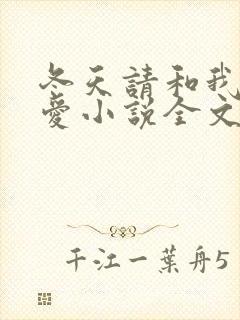 冬天請和我
愛小説全文
千江一葉舟5